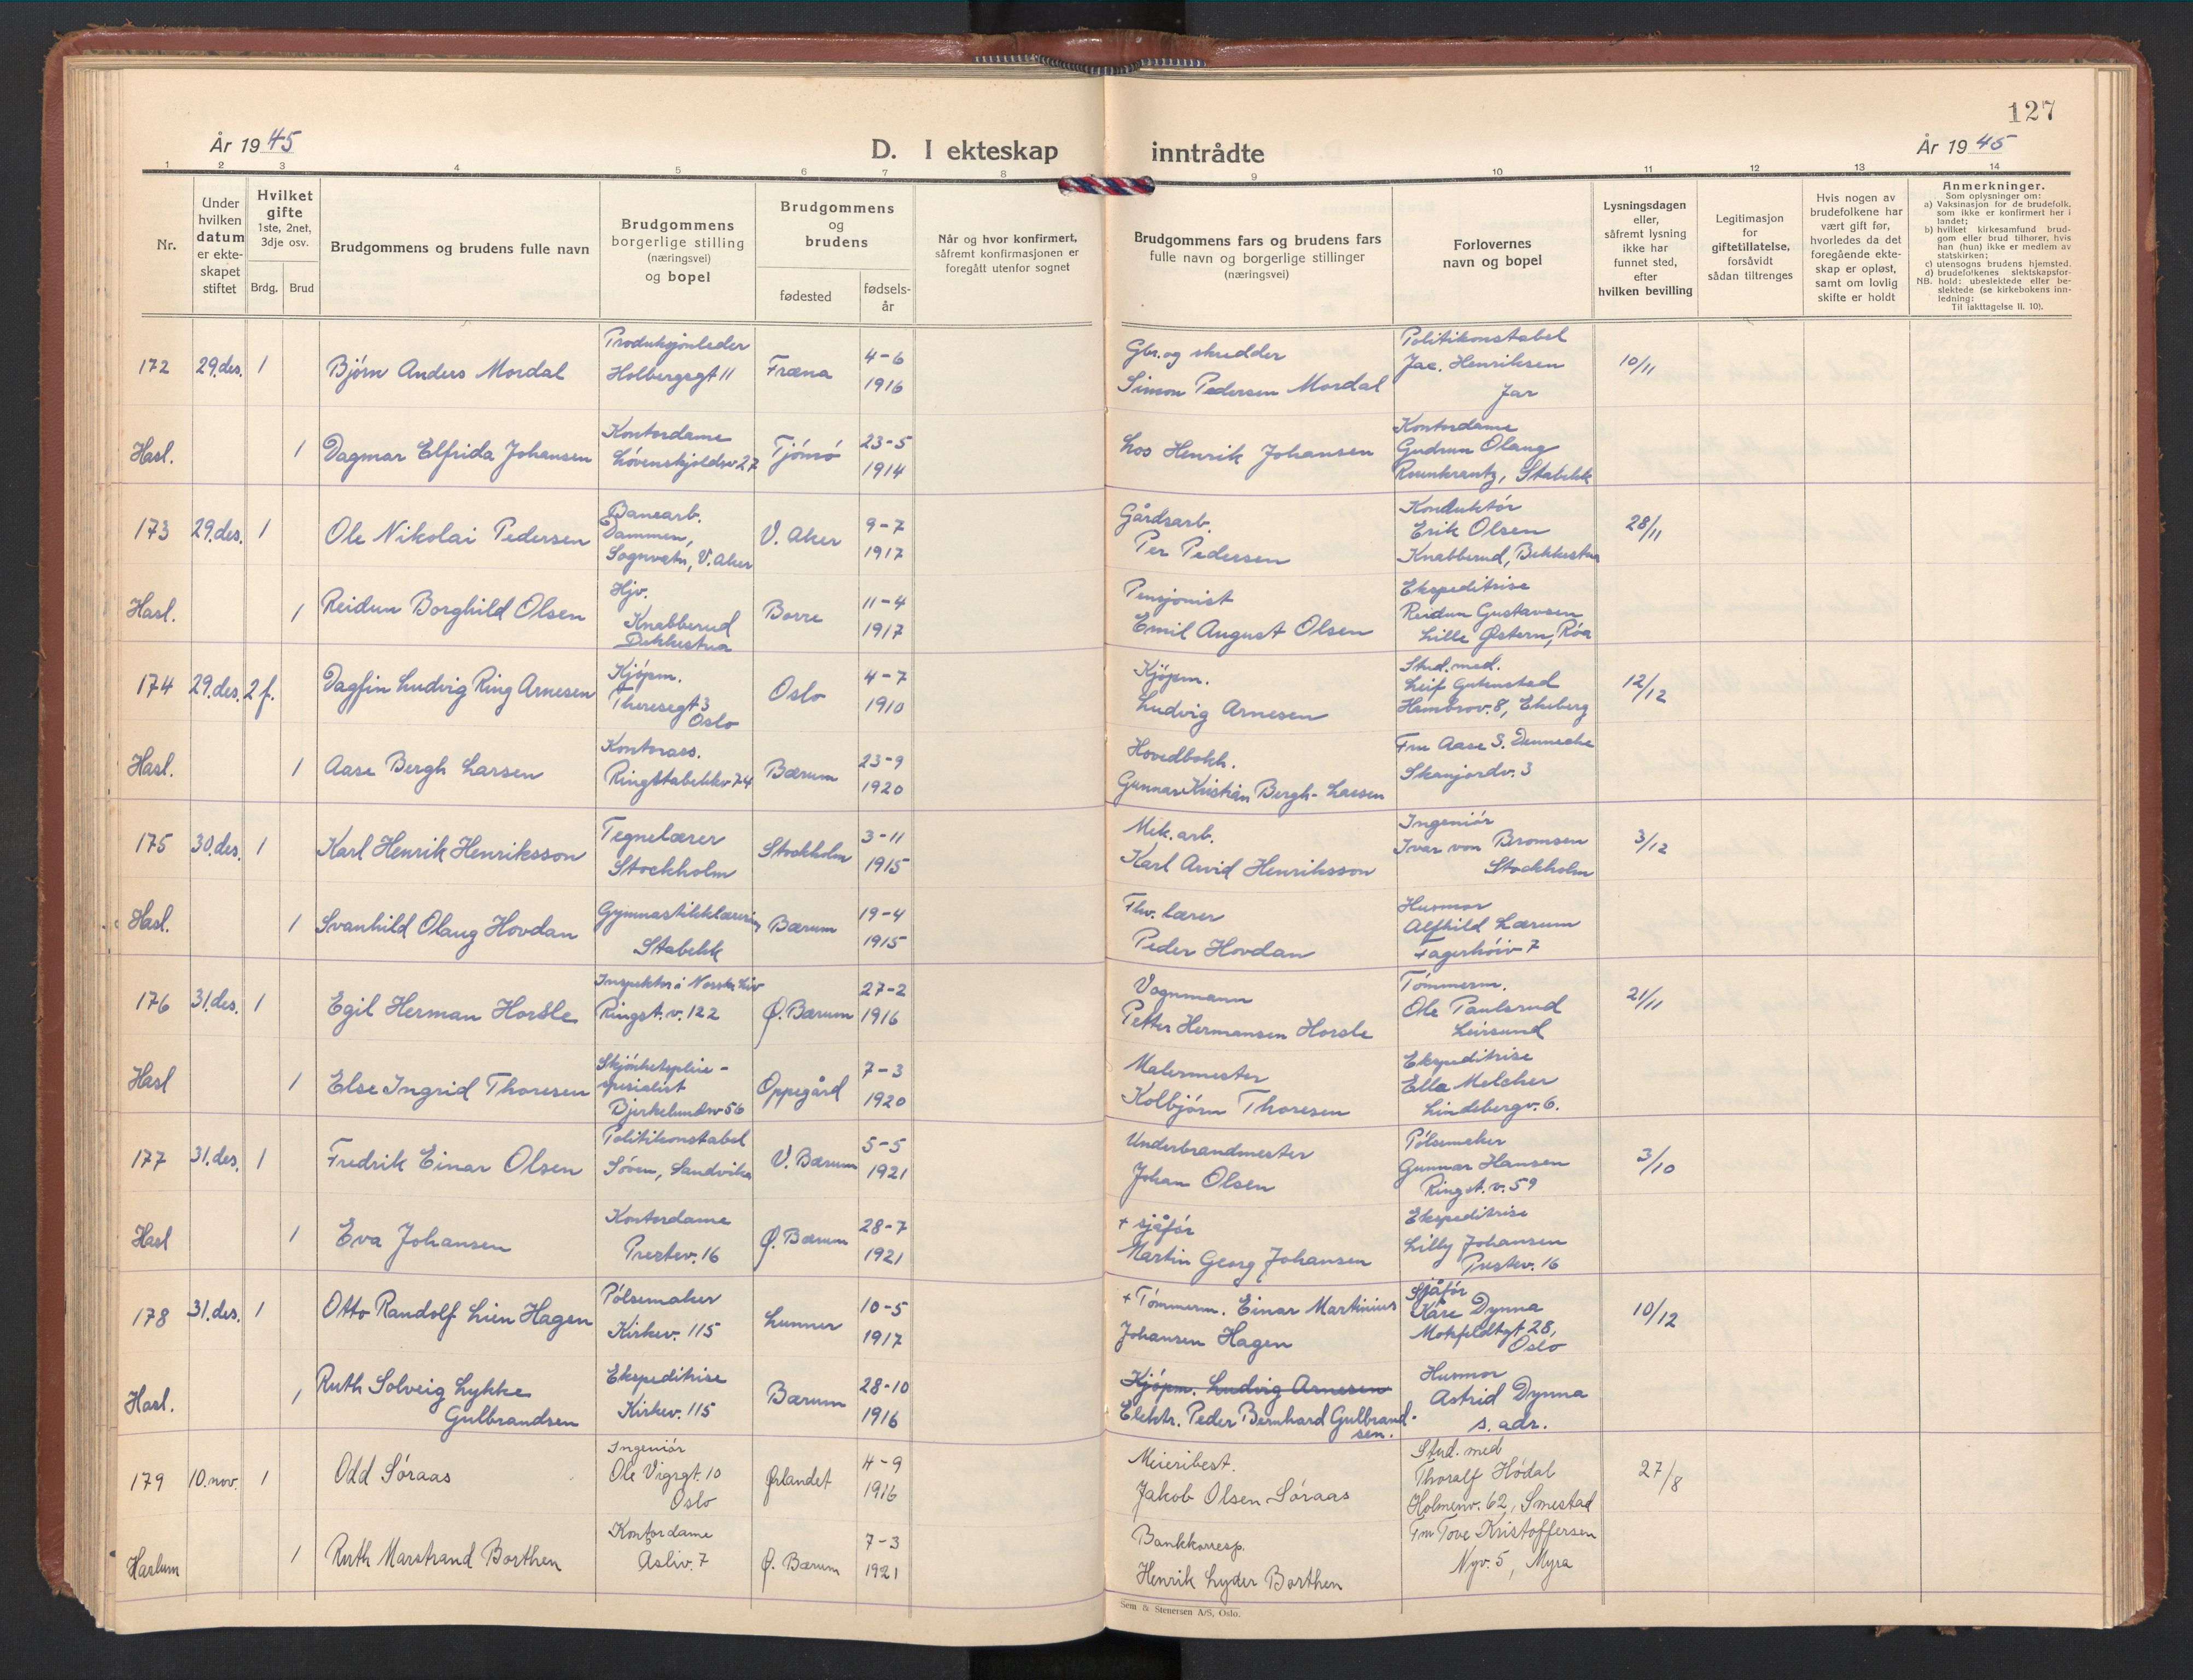 127
År 1945
D. I ekteskap inntrådte
År 1945
1 2 3 4 5 6 7 8 9 10 11 12 13 14
Nr.
Under hvilken datum er ekte-skapet stiftet
Hvilket gifte 1ste, 2net, 3dje osv.
Brdg. Brud
Brudgommens og brudens fulle navn
Brudgommens borgerlige stilling (næringsvei) og bopel
Brudgommens og brudens
fødested
fødsels-år
Når og hvor konfirmert, såfremt konfirmasjonen er foregått utenfor sognet
Brudgommens fars og brudens fars fulle navn og borgerlige stillinger (næringsvei)
Forlovernes navn og bopel
Lysningsdagen eller, såfremt lysning ikke har funnet sted, efter hvilken bevilling
Legitimasjon for giftetillatelse, forsåvidt sådan tiltrenges
Hvis nogen av brudefolkene har vært gift før, hvorledes da det foregående ekte-skap er opløst, samt om lovlig skifte er holdt
Anmerkninger.
Som oplysninger om:
a) Vaksinasjon for de brudefolk, som ikke er konfirmert her i landet;
b) hvilket kirkesamfund brud-gom eller brud tilhører, hvis han (hun) ikke er medlem av statskirken;
c) utensogns brudens hjemsted.
d) brudefolkenes slektskapsfor-hold; ubeslektede eller be-slektede (se kirkebokens inn-ledning:
NB. Til iakttagelse II. 10).
172 29.des. 1 Bjørn Anders Mordal
Produksjonleder
Holbergsgt 11
Fræna 4-6 1916
Gbr. og skredder
Simon Pedersen Mordal
Politikonstabel
Jac. Henriksen
Jar
10/11
Hasl. 1 Dagmar Elfrida Johansen
Kontordame
Løvenskjoldsv 27
Tjömö 23-5 1914
Los Henrik Johansen
Kontordame
Gudrun Olaug
Rosenkrantz, Stabekk
173 29.des. 1 Ole Nikolai Pedersen
Banearb.
Dammen,
Sognvatn, V. Aker
V. Aker 9-7 1917
Gårdsarb.
Per Pedersen
Konduktör
Erik Olsen
Knabberud, Bekkestua
28/11
Hasl. 1 Reidun Borghild Olsen
Hjv.
Knabberud
Bekkestua
Borre 11-4 1917
Pensjonist
Emil August Olsen
Ekspeditrise
Reidun Gustavsen
Lille Østern, Röa
174 29.des. 2 f. Dagfin Ludvig Ring Arnesen
Kjöpm.
Theresegt 3
Oslo
Oslo 4-7 1910
Kjöpm.
Ludvig Arnesen
Stud. med.
Leif Gutenstad
Hambrov. 8, Ekeberg
12/12
Hasl. 1 Aase Bergh Larsen
Kontorass.
Ringstabekkv 74
Bærum 23-9 1920
Hovedbokh.
Gunnar Kristian Bergh-Larsen
Fru Aase S. Dennecke
Skanjordv. 3
175 30.des. 1 Karl Henrik Henriksson
Tegnelærer
Stockholm
Stockholm 3-11 1915
Mek. arb.
Karl Arvid Henriksson
Ingeniör
Ivar von Bromsen
Stockholm
3/12
Hasl. 1 Svanhild Olaug Hovdan
Gymnastikklærerin
Stabekk
Bærum 19-4 1915
Fhv. lærer
Peder Hovdan
Husmor
Alfhild Lærum
Fagerhöiv 7
176 31.des. 1 Egil Herman Horsle
Inspektör i Norske Liv
Ringst. v. 122
Ø. Bærum 27-2 1916
Vognmann
Petter Hermansen Horsle
Tömmerm.
Ole Paulsrud
Leirsund
21/11
Hasl 1 Else Ingrid Thoresen
Skjönhetspleie-
spesialist
Bjerkelundsv 56
Oppegård 7-3 1920
Malermester
Kolbjörn Thoresen
Ekspeditrise
Ella Melcher
Lindebergv. 6.
177 31.des. 1 Fredrik Einar Olsen
Politikonstabel
Löven, Sandvika
V. Bærum 5-5 1921
Underbrandmester
Johan Olsen
Pölsemaker
Gunnar Hansen
Ringst. v. 59
3/10
Hasl 1 Eva Johansen
Kontordame
Prestev. 16
Ø. Bærum 28-7 1921
+ sjåför
Martin Georg Johansen
Ekspeditrise
Lilly Johansen
Prestev. 16
178 31.des. 1 Otto Randolf Lien Hagen
Pölsemaker
Kirkev. 115
Lunner 10-5 1917
+ Tömmerm. Einar Martinius
Johansen Hagen
Sjåför
Kåre Dynna
Motzfeldtgt 28,
Oslo
10/12
Hasl. 1 Ruth Solveig Lykke
Gulbrandsen
Ekspeditrise
Kirkev. 115
Bærum 28-10 1916
Kjöpm. Ludvig Arnesen
Elektr. Peder Bernhard Gulbrand-
sen.
Husmor
Astrid Dynna
s. adr.
179 10.nov. 1 Odd Söraas
Ingeniör
Ole Vigsgt. 10
Oslo
Ørlandet 4-9 1916
Meieribest.
Jakob Olsen Söraas
Stud. med
Thoralf Hödal
Holmenv. 62, Smestad
27/8
Haslum 1 Ruth Marstrand Borthen
Kontordame
Asliv. 7
Ø. Bærum 7-3 1921
Bankkorresp.
Henrik Lyder Borthen
Fru Tove Kristoffersen
Nyv. 5, Myra
Sem & Stenersen A/S, Oslo.